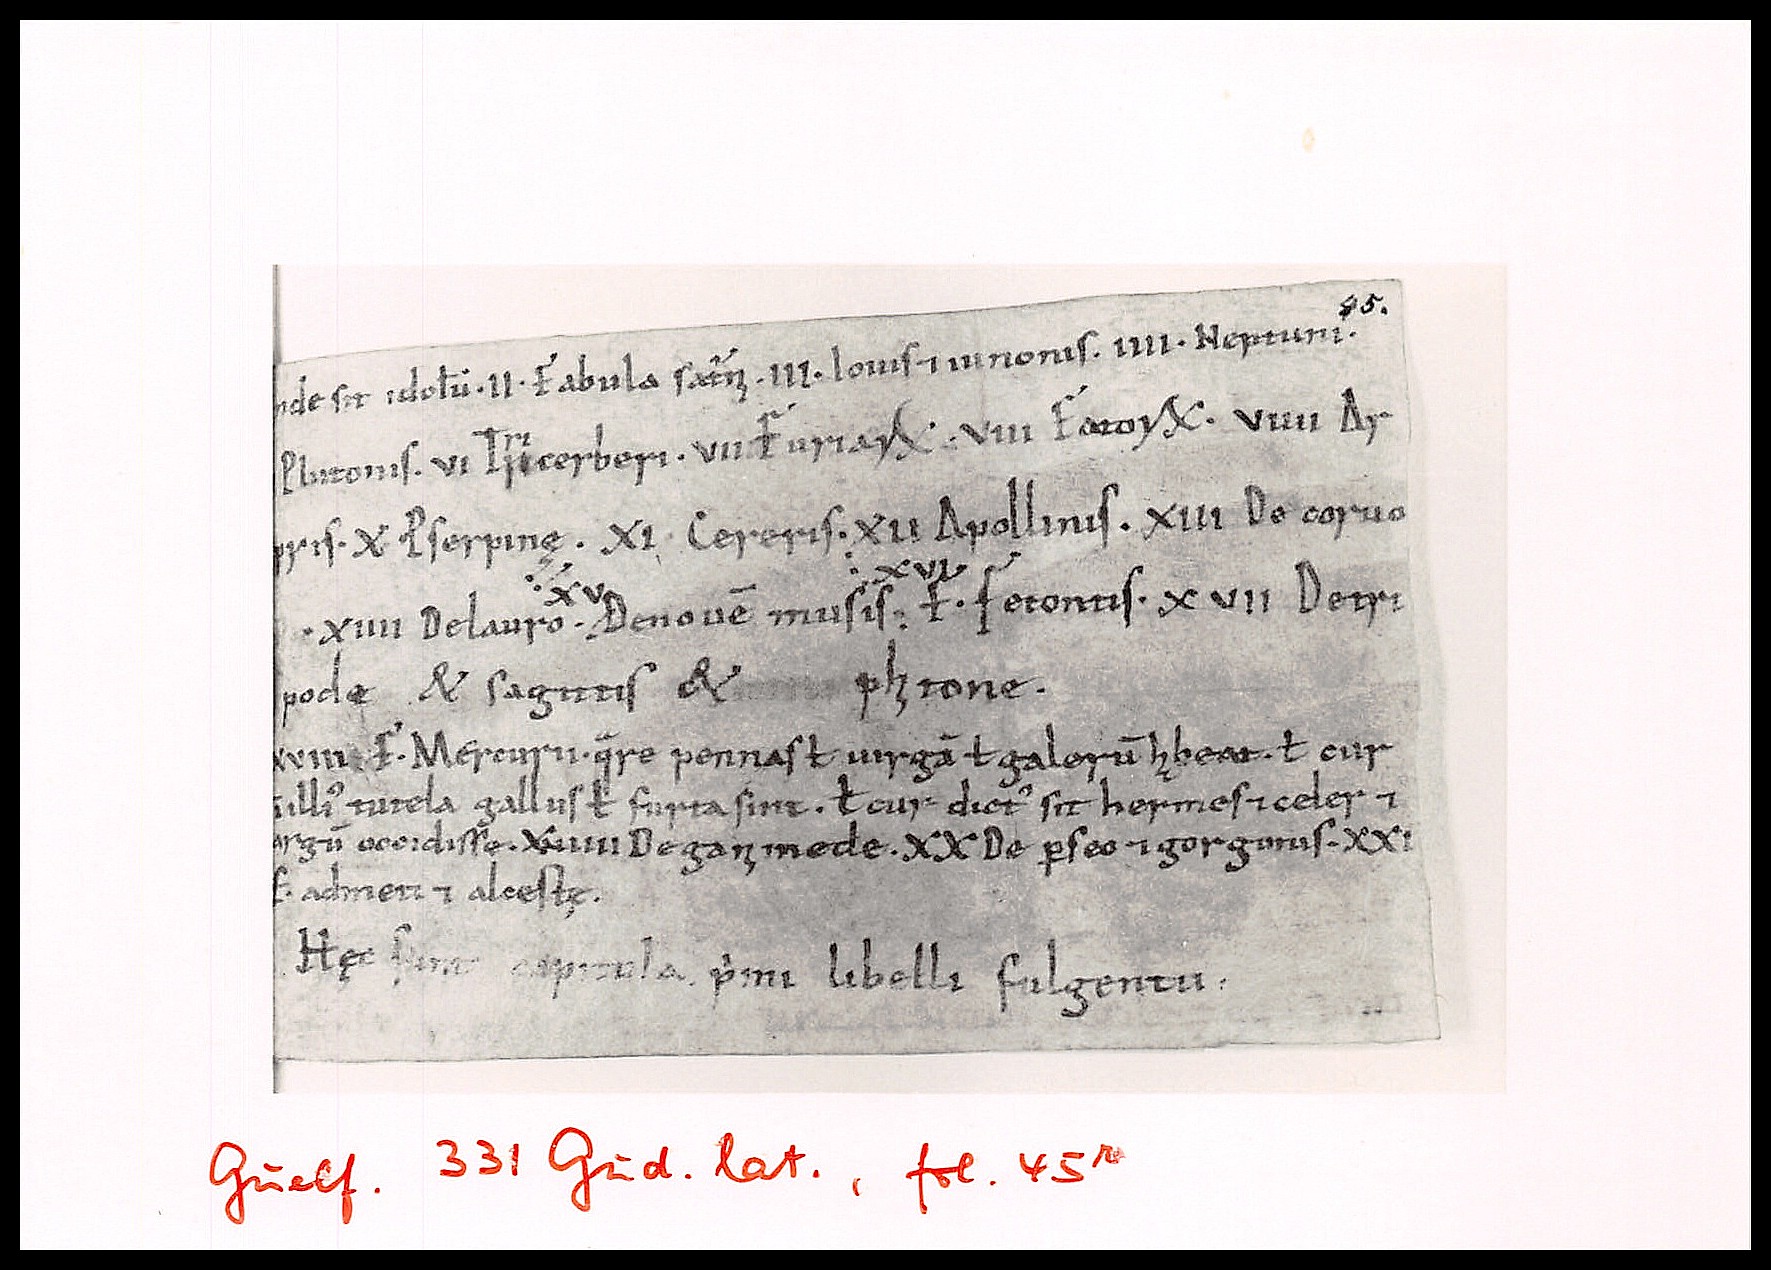 45.
nde sit idolū · II · Fabula satr̄n · III · Iouis ⁊ iunonis · IIII · Neptuni ·
Plutonis · VI Tri cerberi · VII Furiaꝝ · VIII Fatoꝝ · VIIII Ar
pris · X · Pserpinę · XI · Cereris · XII Apollinis · XIII De coruo
XV XVI
· XIIII De lauro · De nouē musis · F · fetontis · XVII De tri
podę & sagittis & phitone ·
XVIII F · Mercurii · q̄re pennas ł uirgā ł galerū habeat · ł cur
illi⁹ tutela gallus ł furta sint · ł cur dict⁹ sit hermes ⁊ celer ⁊
argū occidisse · XVIIII De ganimede · XX De ꝑseo ⁊ gorgonis · XXI
F · admeti ⁊ alcestę ·
Hęc sunt capitula p̍mi libelli fulgentii :
Guelf. 331 Gud. lat., fol. 45r